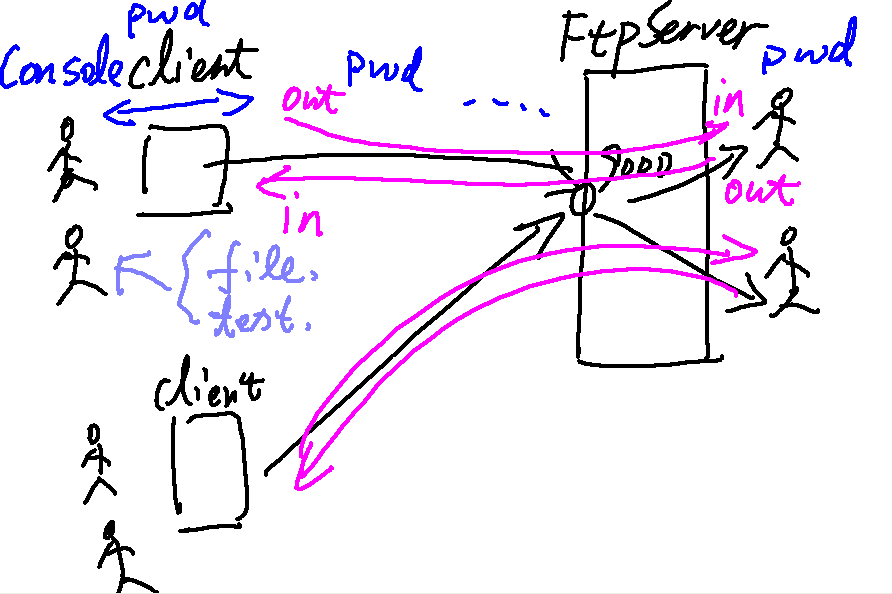 pwd
Console client
pwd
FtpServer
pwd
out
in
9000
in
out
file.
test.
client